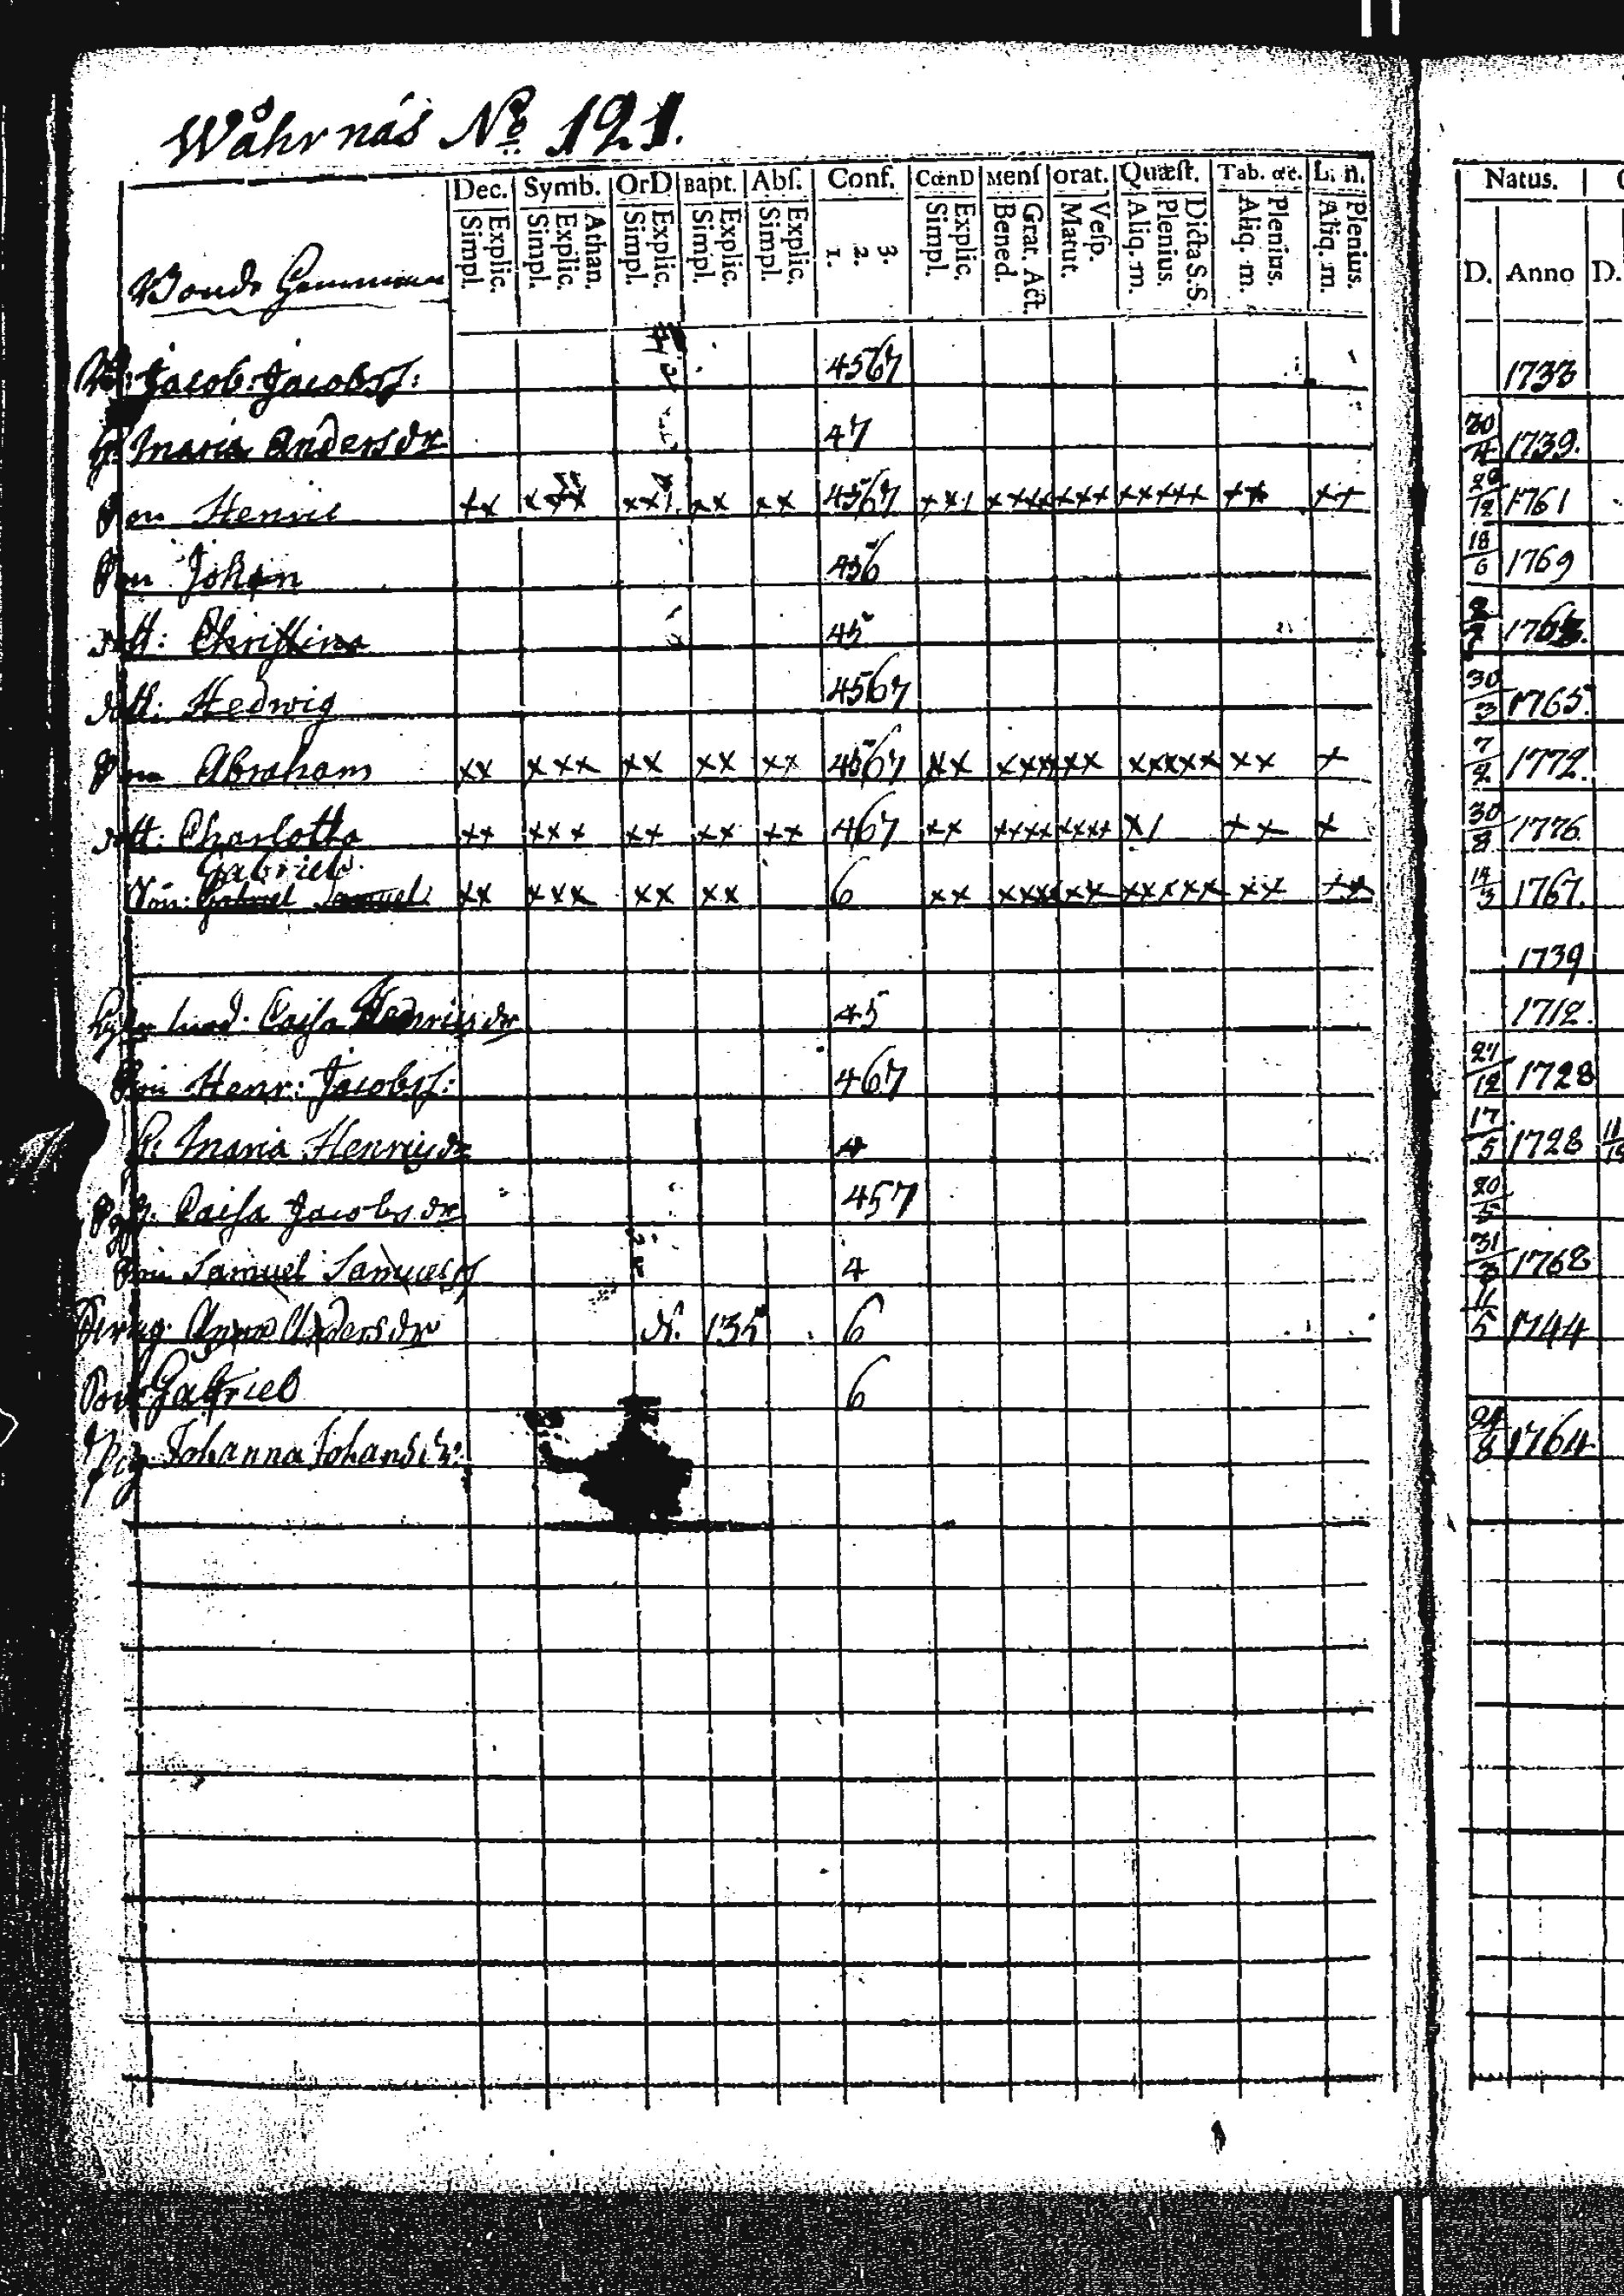 Wåhrnäs No 121.
Dec. Symb. OrD Bapt. Abſ. Conf. CœnD Menſ orat. Quæſt. Tab. œc. L. n. Natus.
Explic. Simpl. Athan. Explic. Simpl. Explic. Simpl. Explic. Simpl. Explic. Simpl. 3. 2. 1. Explic. Simpl. Grat. Act. Bened. Veſp. Matut. Dicta S.S. Plenius. Aliq. m. Plenius. Aliq. m. Plenius. Aliq. m. D. Anno D.
Bonde
Jacob: Jacobsſ: 4567 1733
H. Maria Andersdr 47 30/4 1739.
Son Henric xx xxx xx xx 4567 29/12 1761
Son Johan 456 18/6 1769
dott: Christina 45
dott: Hedwig 4567 30/3 1765.
Son Abraham xx xxx xx xx xx 4567 xx xxxxxx xxxxx xx x 7/2 1772.
dott: Charlotta xx xxx xx xx xx 467 xx xxxxxxxx x/ xx x 30/8 1776
Gabriel
Son: Gabriel Samuel xx xxx xx xx 6 xx xxxxxx xxxxx xx xx 14/3 1767.
1739
Caisa Henricsdr 45 1712.
Son Henr: Jacobsſ: 467 21/12 1728
H. Maria Henricsdr 4 17/5 1728
Pig. Caisa Jacobsdr 457 20/5
Son Samuel Samuelsſ 4 31/3 1768
Anna Andersdr N. 135 6 11/5 1744
Son Gabriel 6
Pig. Johanna Johansdr: 24/8 1764